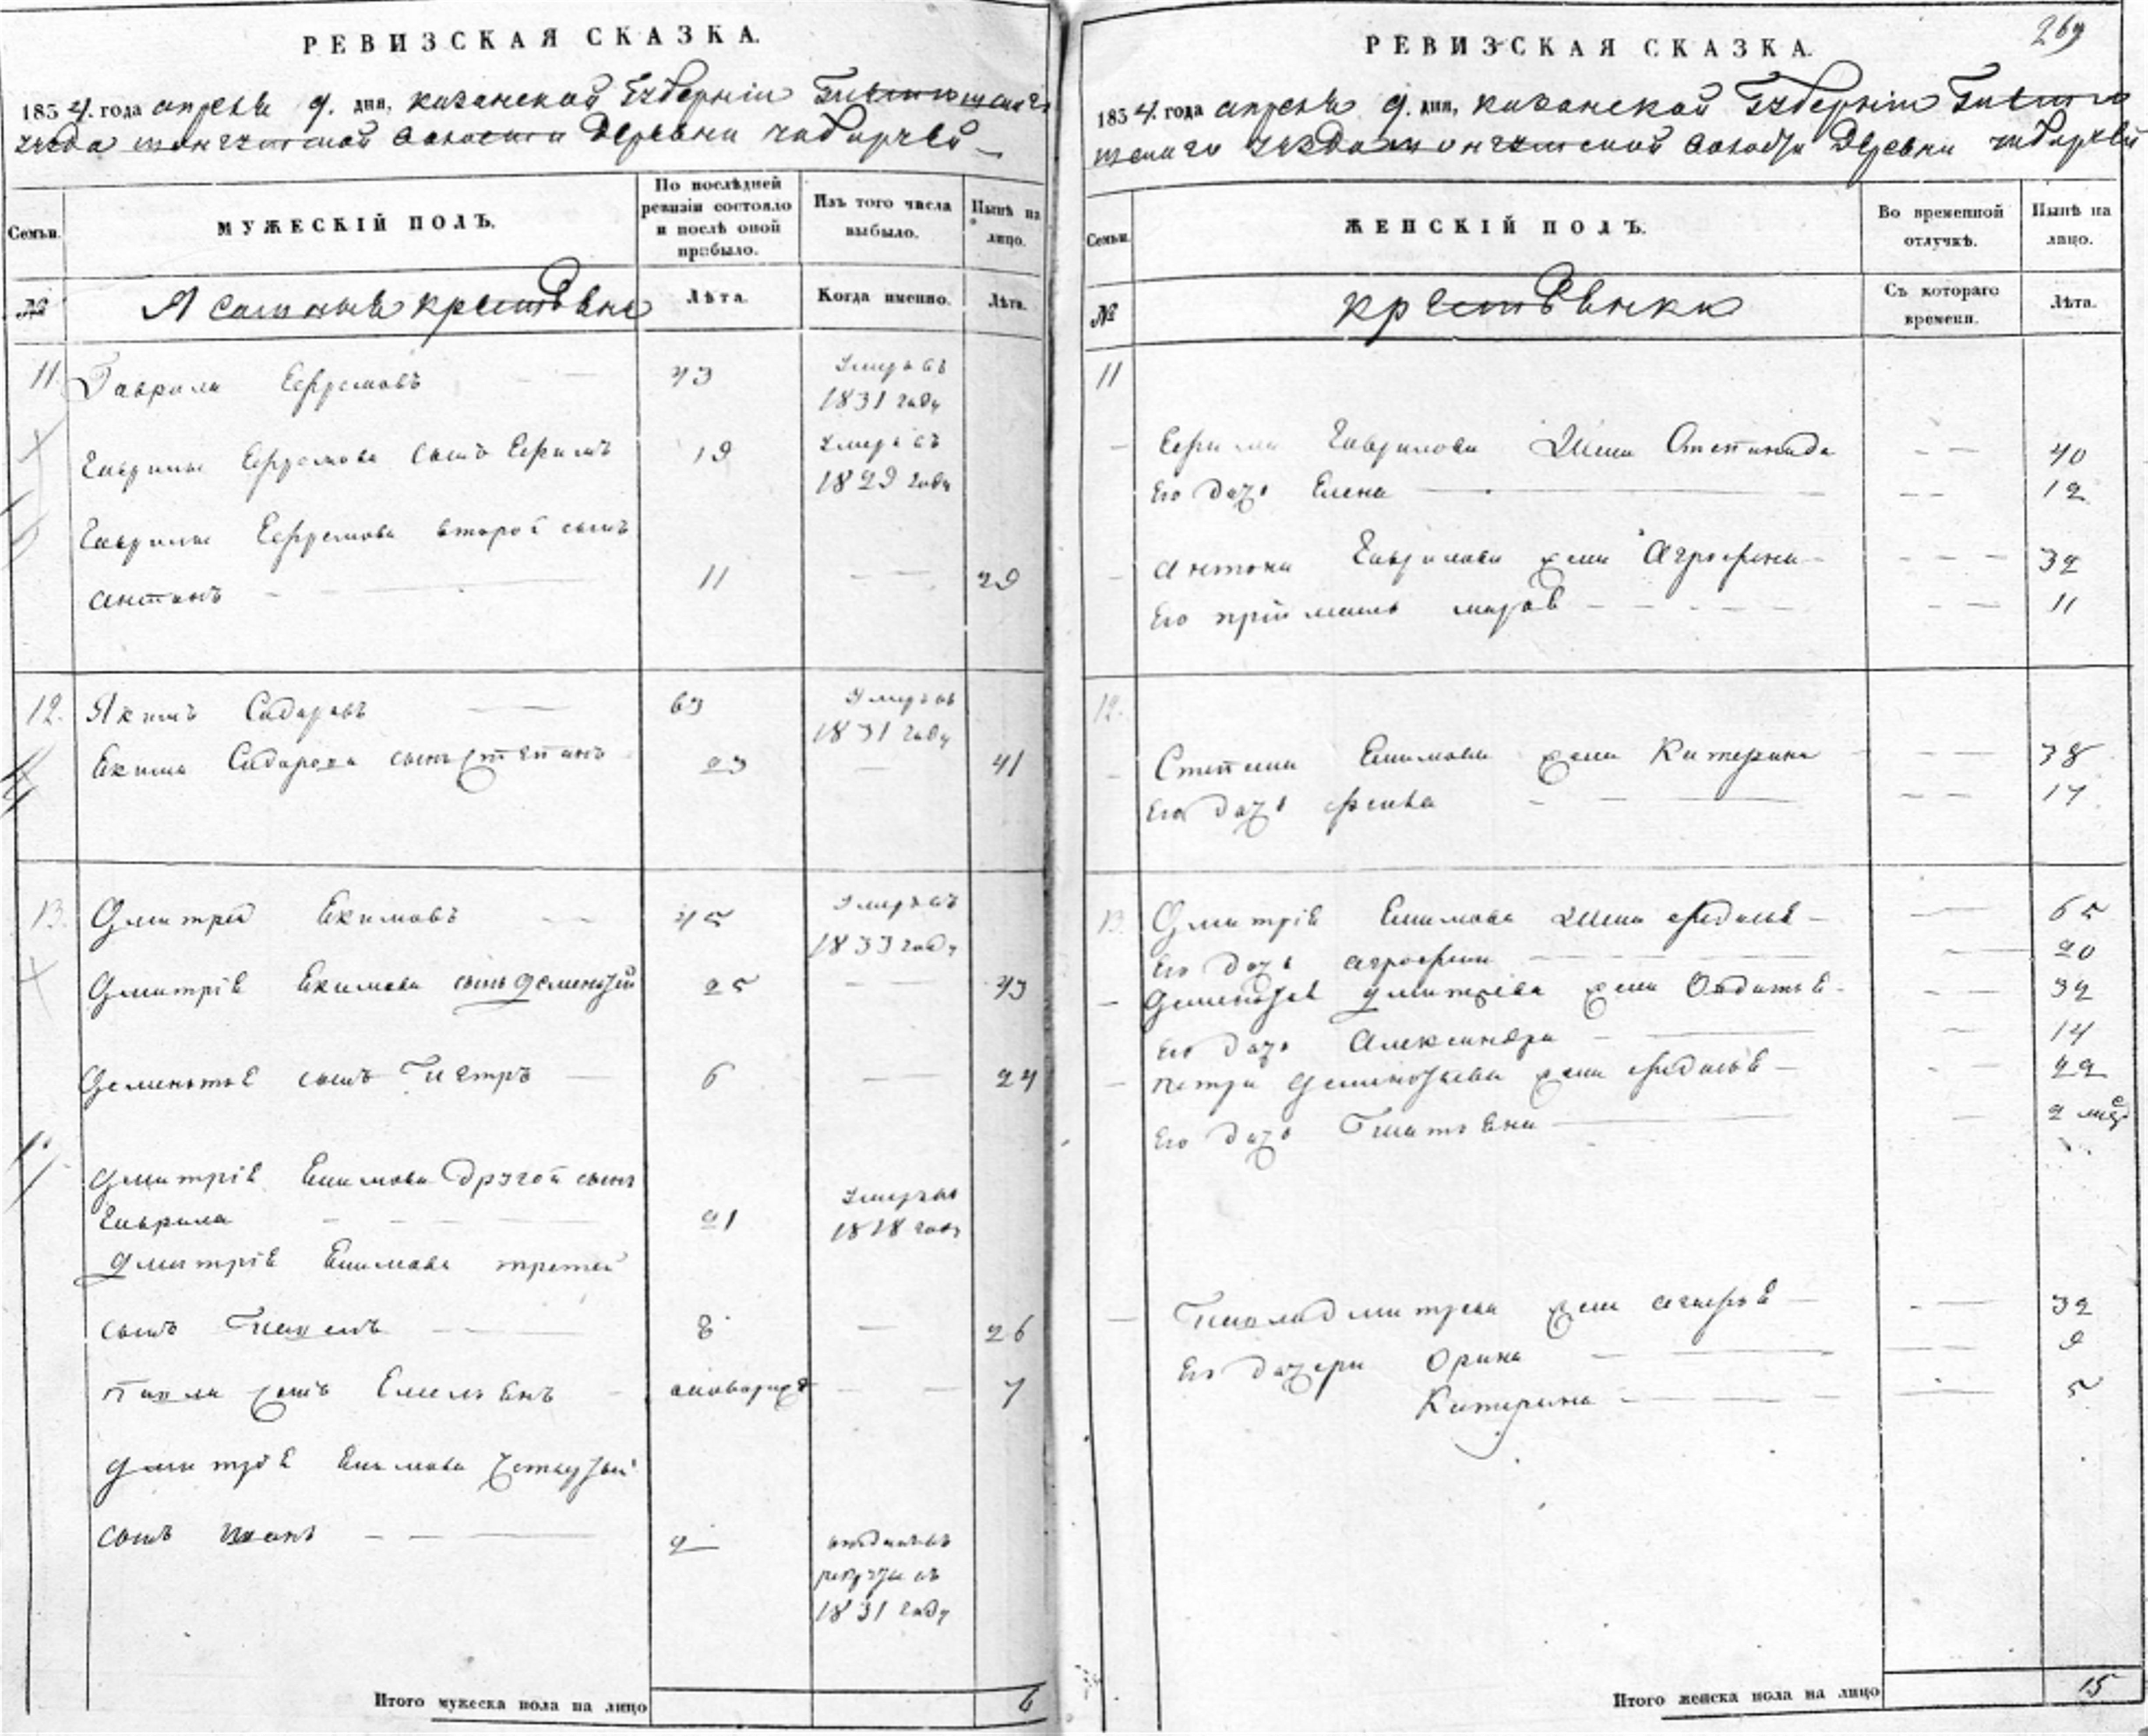 РЕВИЗСКАЯ СКАЗКА.
1834. года апреля 9. дня, казанской Губернии
уезда волости Деревни
Семьи.
МУЖЕСКІЙ ПОЛЪ.
По послѣдней ревизіи состояло и послѣ оной прибыло.
Изъ того числа выбыло.
Нынѣ на лицо.
№
Ясашныя крестьяне
Лѣта.
Когда именно.
Лѣта.
11. Гаврила Ефремовъ 43 Умеръ въ
1831 году
Гаврилы Ефремова сынъ Ефимъ 19 Умеръ въ
1829 году
Гаврилы Ефремова второй сынъ
антонъ 11 29
12. Якимъ Сидоровъ 63 Умеръ въ
1831 году
Екима Сидорова сынъ степанъ 23 41
13. Дмитрей Екимовъ 45 Умеръ въ
1833 году
Дмитрія Екимова сынъ дементей 25 43
Дементья сынъ Петръ 6 24
Дмитрія Екимова другой сынъ
Гаврила 21 Умеръ въ
1828 году
дмитрія Екимова третей
сынъ Павелъ 8 26
павла сынъ Емельянъ 7
дмитрія Екимова четвертой
сынъ иванъ 2 въ
рекруты въ
1831 году
Итого мужеска пола на лицо 6
269
РЕВИЗСКАЯ СКАЗКА.
1834. года апреля 9. дня, казанской Губернии
уезда волости Деревни
Семьи.
ЖЕНСКІЙ ПОЛЪ.
Во временной отлучкѣ.
Нынѣ на лицо.
№
крестьянки
Съ котораго времени.
Лѣта.
11
Ефима Гаврилова жена Степанида 40
Его дочь Елена 12
антона Гаврилова жена Агрофена 32
Его 11
12.
Степана Екимова жена Катерина 38
Его дочь 17
13. Дмитрія Екимова жена 65
Его дочь агрофена 20
Дементья дмитрева жена Овдотья 32
Его дочь Александра 14
петра Дементьева жена 22
Его дочь Татьяна 2 мес
Павла дмитрева жена 32
Его дочери Орина 9
Катерина 5
Итого женска пола на лицо 15